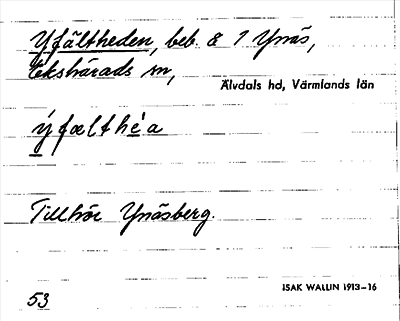 Yfältheden, beb. å 1 Ynäs,
Ekshärads sn,
Älvdals hd, Värmlands län
ý fælthè a
Tillhör Ynäsberg.
53
ISAK WALLIN 1913–16